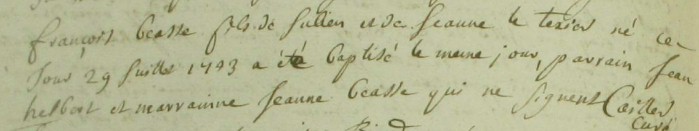 françois beasse fils de Jullien et de Jeanne le texier né ce
Jour 29 Juillet 1743 a été baptisé le meme jour, parrain Jean
helbert et marrainne Jeanne beasse qui ne signent
Curé